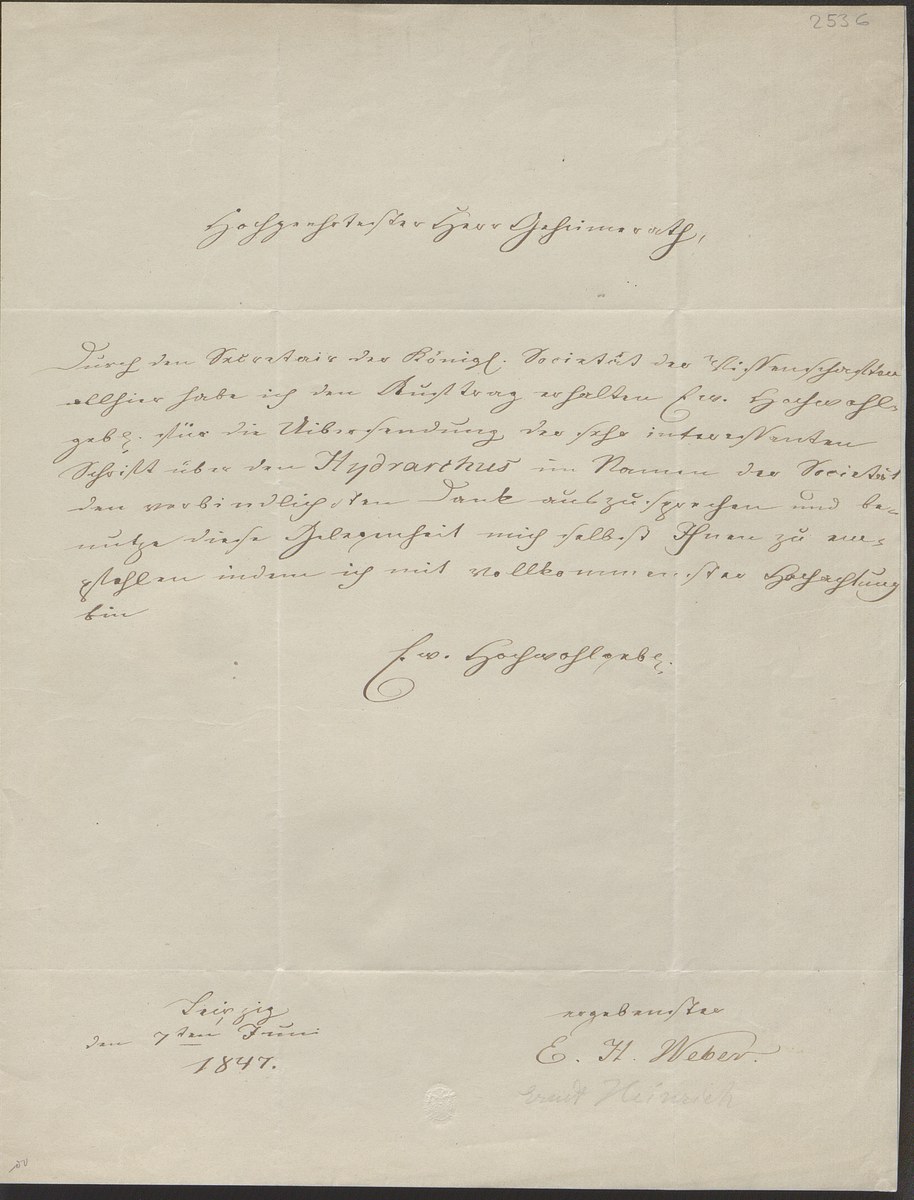 2536
Hochgeehrtester Herr Geheimerath,
Durch den Secretair der Königl. Societät der Wissenschaften
allhier habe ich den Auftrag erhalten Ew. Hochwohl-
gebl. für die Uibersendung der sehr interessanten
Schrift über den Hydrarchus im Namen der Societät
den verbindlichsten Dank auszusprechen und be-
nutze diese Gelegenheit mich selbst Ihnen zu em-
pfehlen indem ich mit vollkommenster Hochachtung
bin
Ew. Hochwohlgebl.
Leipzig
den 7ten Juni
1847.
ergebenster
E. H. Weber.
Ernst Heinrich